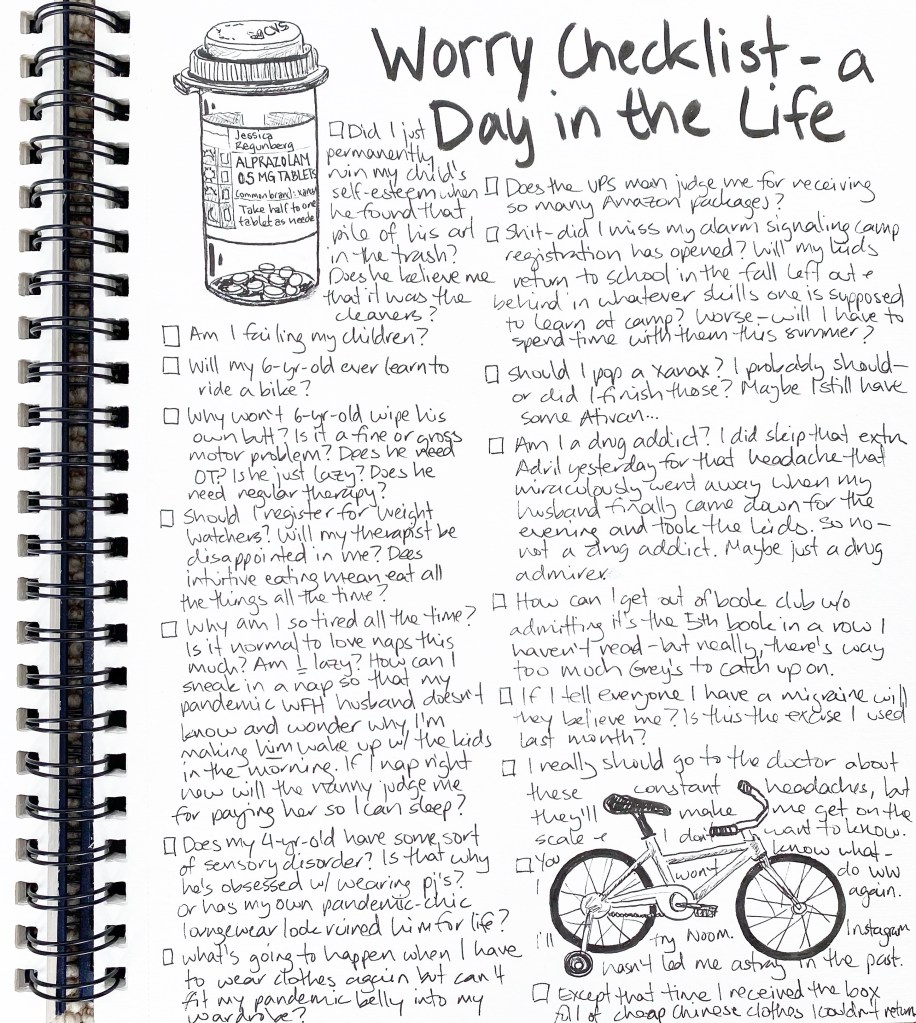 Worry Checklist - a
Day in the Life
CVS
Jessica
Regunberg
ALPRAZOLAM
0.5 MG TABLETS
(common brand: xanax
Take half to one
tablet as neede
Did I just
permanently
ruin my child's
self-esteem when
he found that
pile of his art
in the trash?
Does he believe me
that it was the
cleaners?
Am I failing my children?
Will my 6-yr-old ever learn to
ride a bike?
Why won't 6-yr-old wipe his
own butt? Is it a fine or gross
motor problem? Does he need
OT? Is he just lazy? Does he
need regular therapy?
Should I register for Weight
Watchers? Will my therapist be
disappointed in me? Does
intuitive eating mean eat all
the things all the time?
Why am I so tired all the time?
Is it normal to love naps this
much? Am I lazy? How can I
sneak in a nap so that my
pandemic WFH husband doesn't
know and wonder why I'm
making him wake up w/ the kids
in the morning. If I nap right
now will the nanny judge me
for paying her so I can sleep?
Does my 4-yr-old have some sort
of sensory disorder? Is that why
he's obsessed w/ wearing pj's?
or has my own pandemic-chic
loungewear look ruined him for life?
what's going to happen when I have
to wear clothes again but can't
fit my pandemic belly into my
wardrobe?
Does the UPS man judge me for receiving
so many Amazon packages?
Shit-did I miss my alarm signaling camp
registration has opened? Will my kids
return to school in the fall left out +
behind in whatever skills one is supposed
to learn at camp? Worse-will I have to
spend time with them this summer?
Should I pop a Xanax? I probably should-
or did I finish those? Maybe I still have
some Ativan...
Am I a drug addict? I did skip that extra
Advil yesterday for that headache that
miraculously went away when my
husband finally came down for the
evening and took the kids. So no-
not a drug addict. Maybe just a drug
admirer.
How can I get out of book club w/o
admitting it's the 5th book in a row I
haven't read-but really, there's way
too much Grey's to catch up on.
If I tell everyone I have a migraine will
they believe me? Is this the excuse I used
last month?
I really should go to the doctor about
these constant headaches, but
they'll make me get on the
scale + I don't want to know.
You know what-
I won't do WW
again.
I'll try Noom. Instagram
hasn't led me astray in the past.
Except that time I received the box
full of cheap Chinese clothes I couldn't return